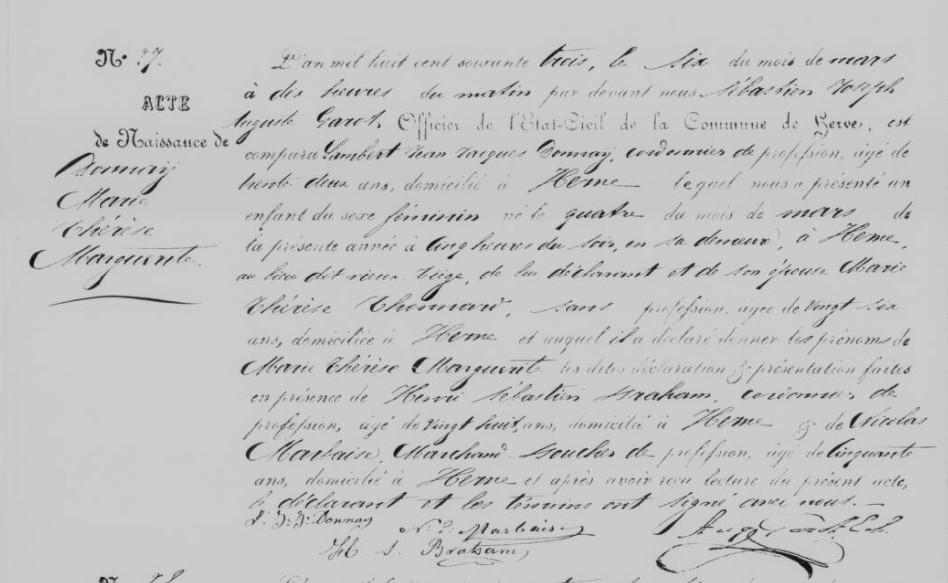 N° 27.
ACTE
de Naissance de
Donnay
Marie
Thérèse
Marguerite.
L'an mil huit cent soixante trois, le six du mois de mars
à dix heures du matin par devant nous Sébastien Joseph
Auguste Garot, Officier de l'État-Civil de la Commune de Herve, est
comparu Lambert Jean Jacques Donnay, cordonnier de profession, âgé de
trente deux ans, domicilié à Herve lequel nous a présenté un
enfant du sexe féminin né le quatre du mois de mars de
la présente année à cinq heures du soir, en sa demeure, à Herve,
au lieu dit vieux Tiège, de lui déclarant et de son épouse Marie
Thérèse Thonnard, sans profession, âgée de vingt six
ans, domiciliée à Herve et auquel il a déclaré donner les prénoms de
Marie Thérèse Marguerite les dites déclaration & présentation faites
en présence de Henri Sébastien Braham, cordonnier de
profession, âgé de vingt huit, ans, domicilié à Herve & de Nicolas
Marbaise, Marchand Boucher de profession, âgé de cinquante
ans, domicilié à Herve et après avoir reçu lecture du présent acte,
le déclarant et les témoins ont signé avec nous. —
L. J. J. Donnay
N. J. Marbaise
H. S. Braham